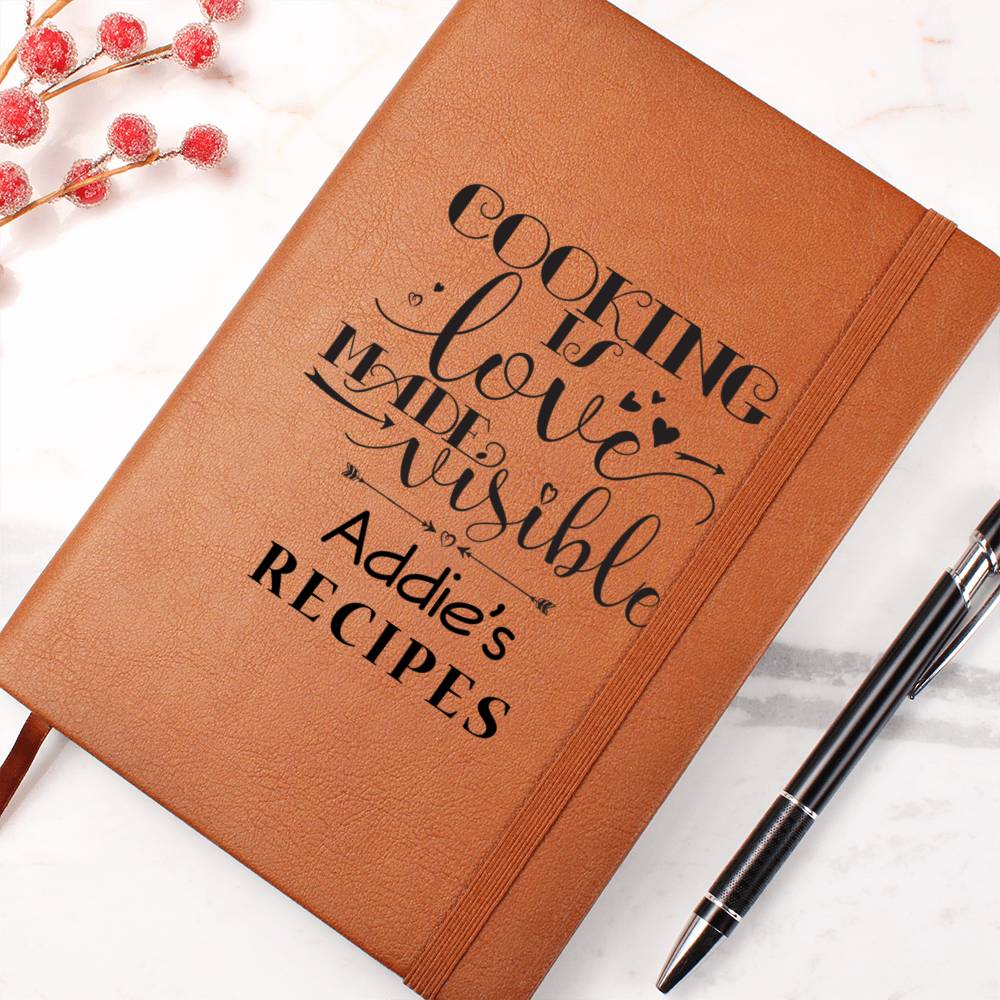 COOKING
IS
love
MADE
visible
Addie's
RECIPES